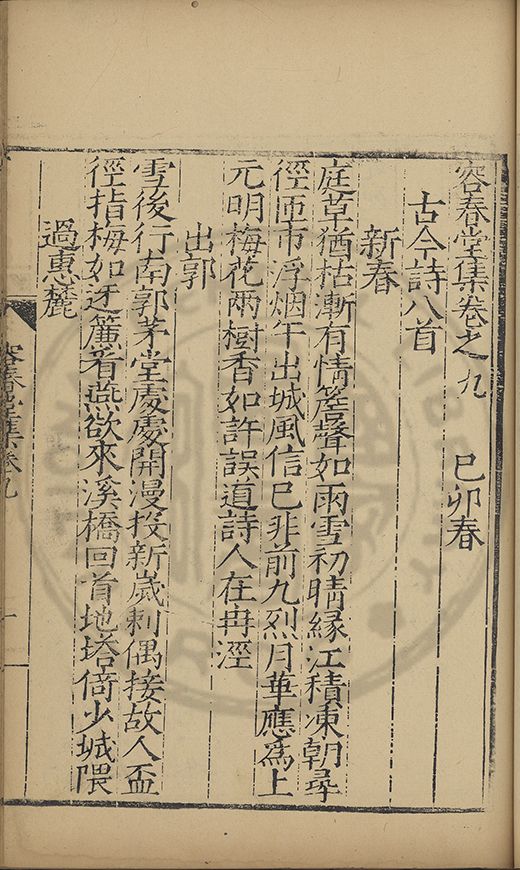 容春堂集卷之九　己卯春
古今詩八首
新春
庭草猶枯漸有情簷聲如雨雪初晴緣江積凍朝尋
徑匝市浮烟午出城風信已非前九烈月華應為上
元明梅花兩樹香如許誤道詩人在冉涇
出郭
雪後行南郭茅堂處處開漫投新歲刺偶接故人盃
徑指梅如迓簾看燕欲來溪橋回首地塔倚少城隈
過惠麓
容春堂集卷九
一